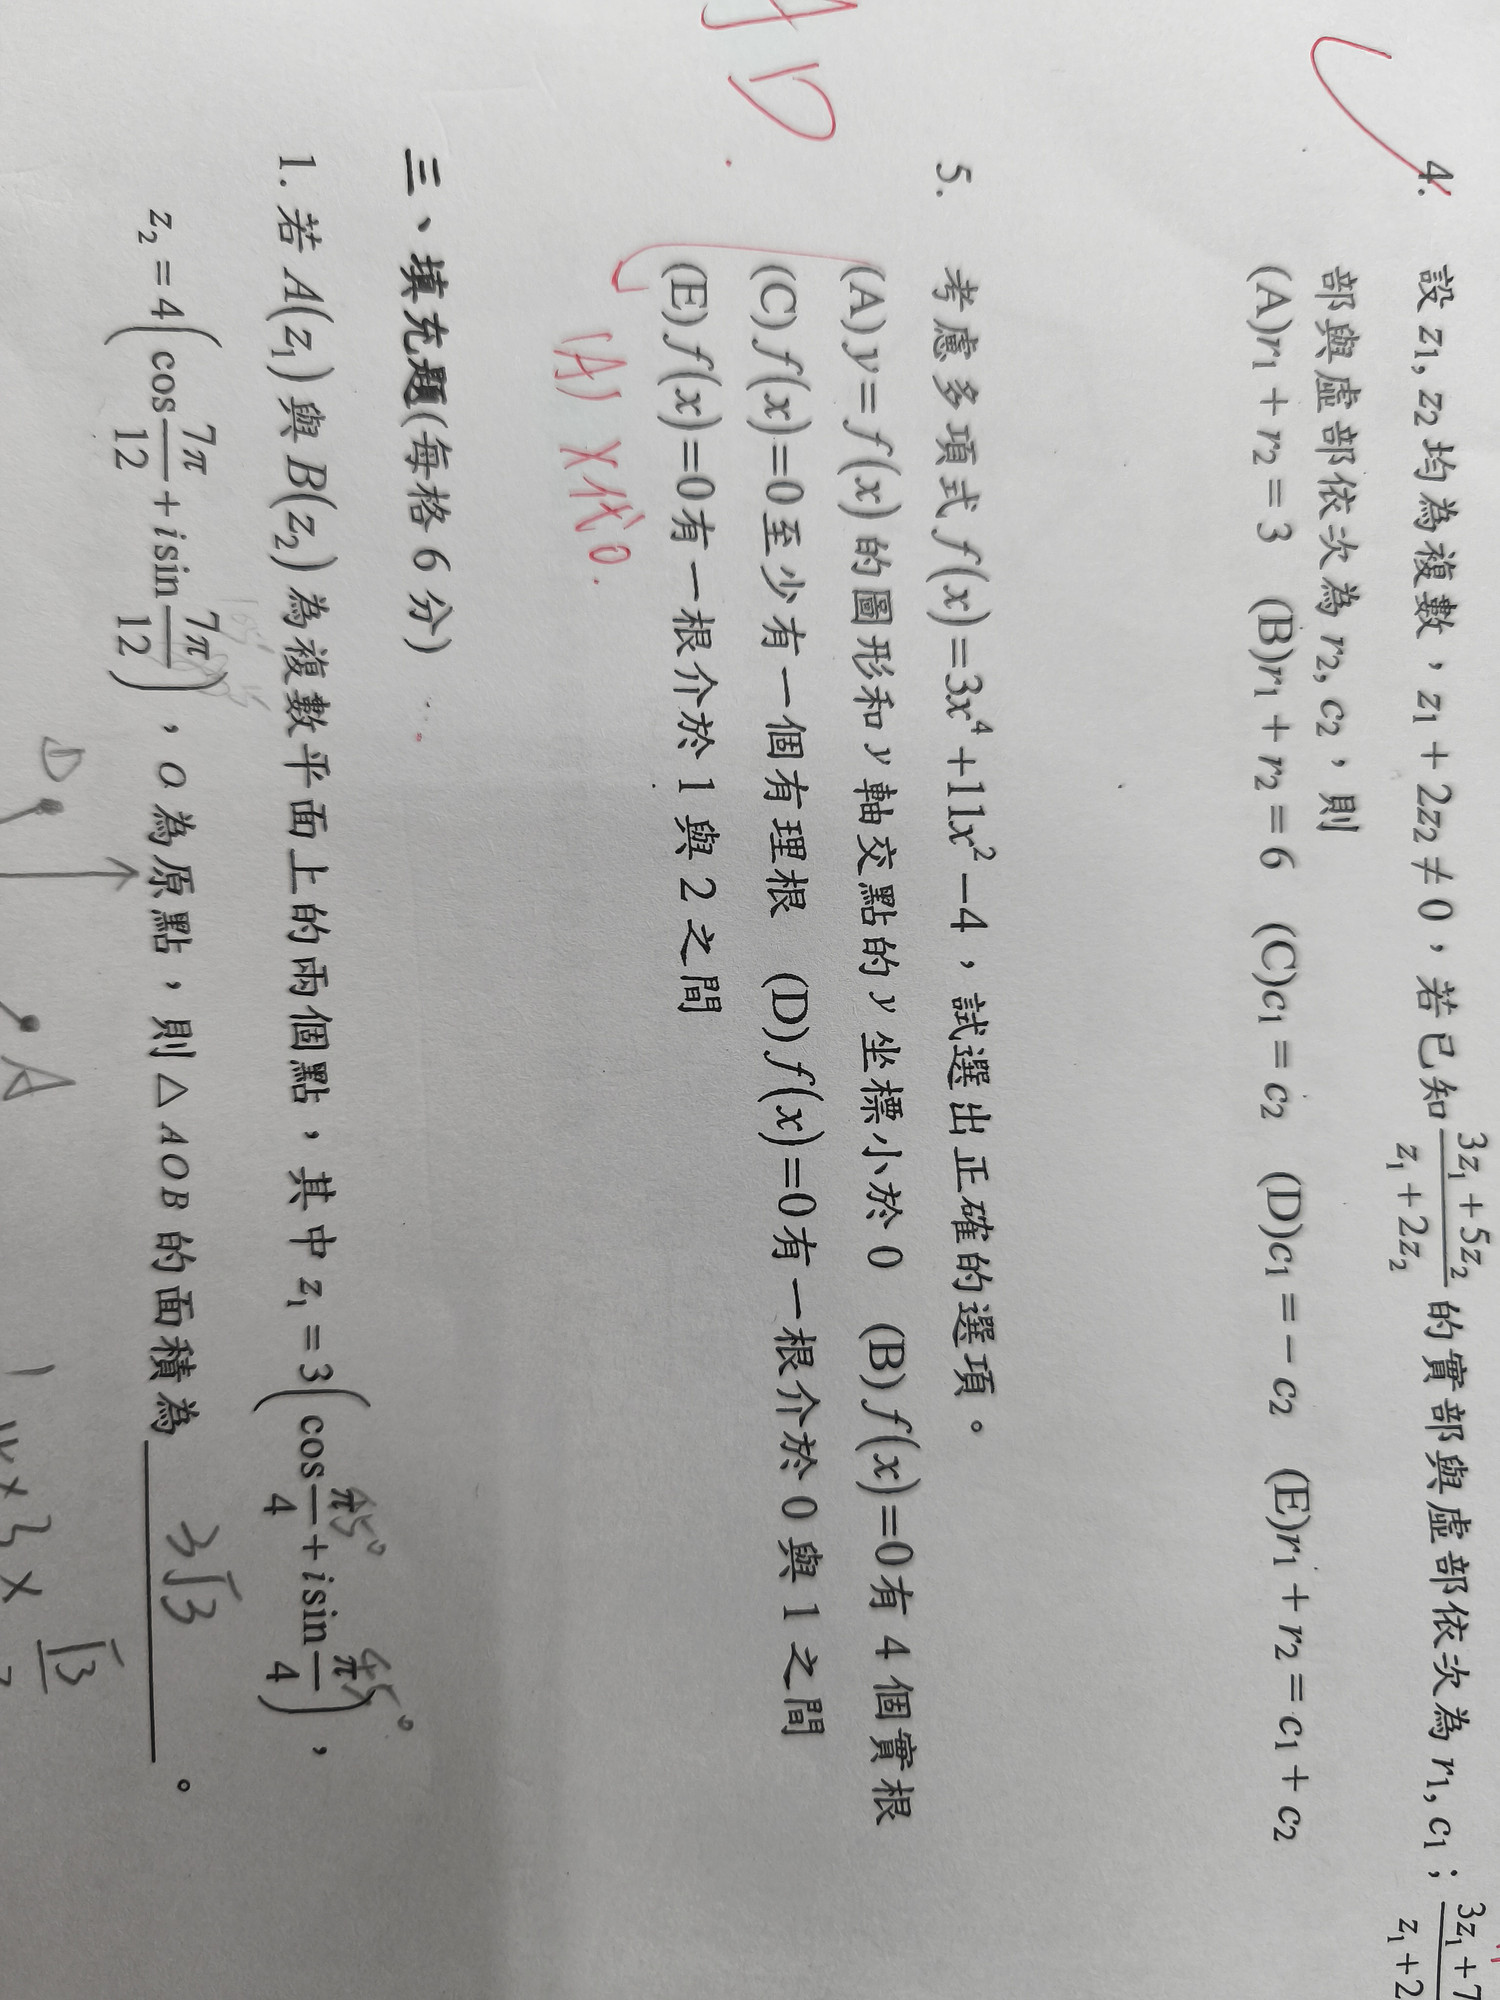 4. 設 z₁, z₂ 均為複數，z₁ + 2z₂ ≠ 0，若已知 (3z₁ + 5z₂)/(z₁ + 2z₂) 的實部與虛部依次為 r₁, c₁；(3z₁ + 7/(z₁ + 2
部與虛部依次為 r₂, c₂，則
(A)r₁ + r₂ = 3 (B)r₁ + r₂ = 6 (C)c₁ = c₂ (D)c₁ = − c₂ (E)r₁ + r₂ = c₁ + c₂
AD
5. 考慮多項式 f(x)=3x⁴+11x²−4，試選出正確的選項。
(A) y= f(x) 的圖形和 y 軸交點的 y 坐標小於 0 (B) f(x)=0有 4 個實根
(C) f(x)=0至少有一個有理根 (D) f(x)=0有一根介於 0 與 1 之間
(E) f(x)=0有一根介於 1 與 2 之間
(A) x代0.
三、填充題(每格 6 分)
1. 若 A(z₁) 與 B(z₂) 為複數平面上的兩個點，其中 z₁ = 3(cos π/4 + i sin π/4)，
45° 45°
z₂ = 4(cos 7π/12 + i sin 7π/12)，O 為原點，則 △AOB 的面積為 3√3。
A